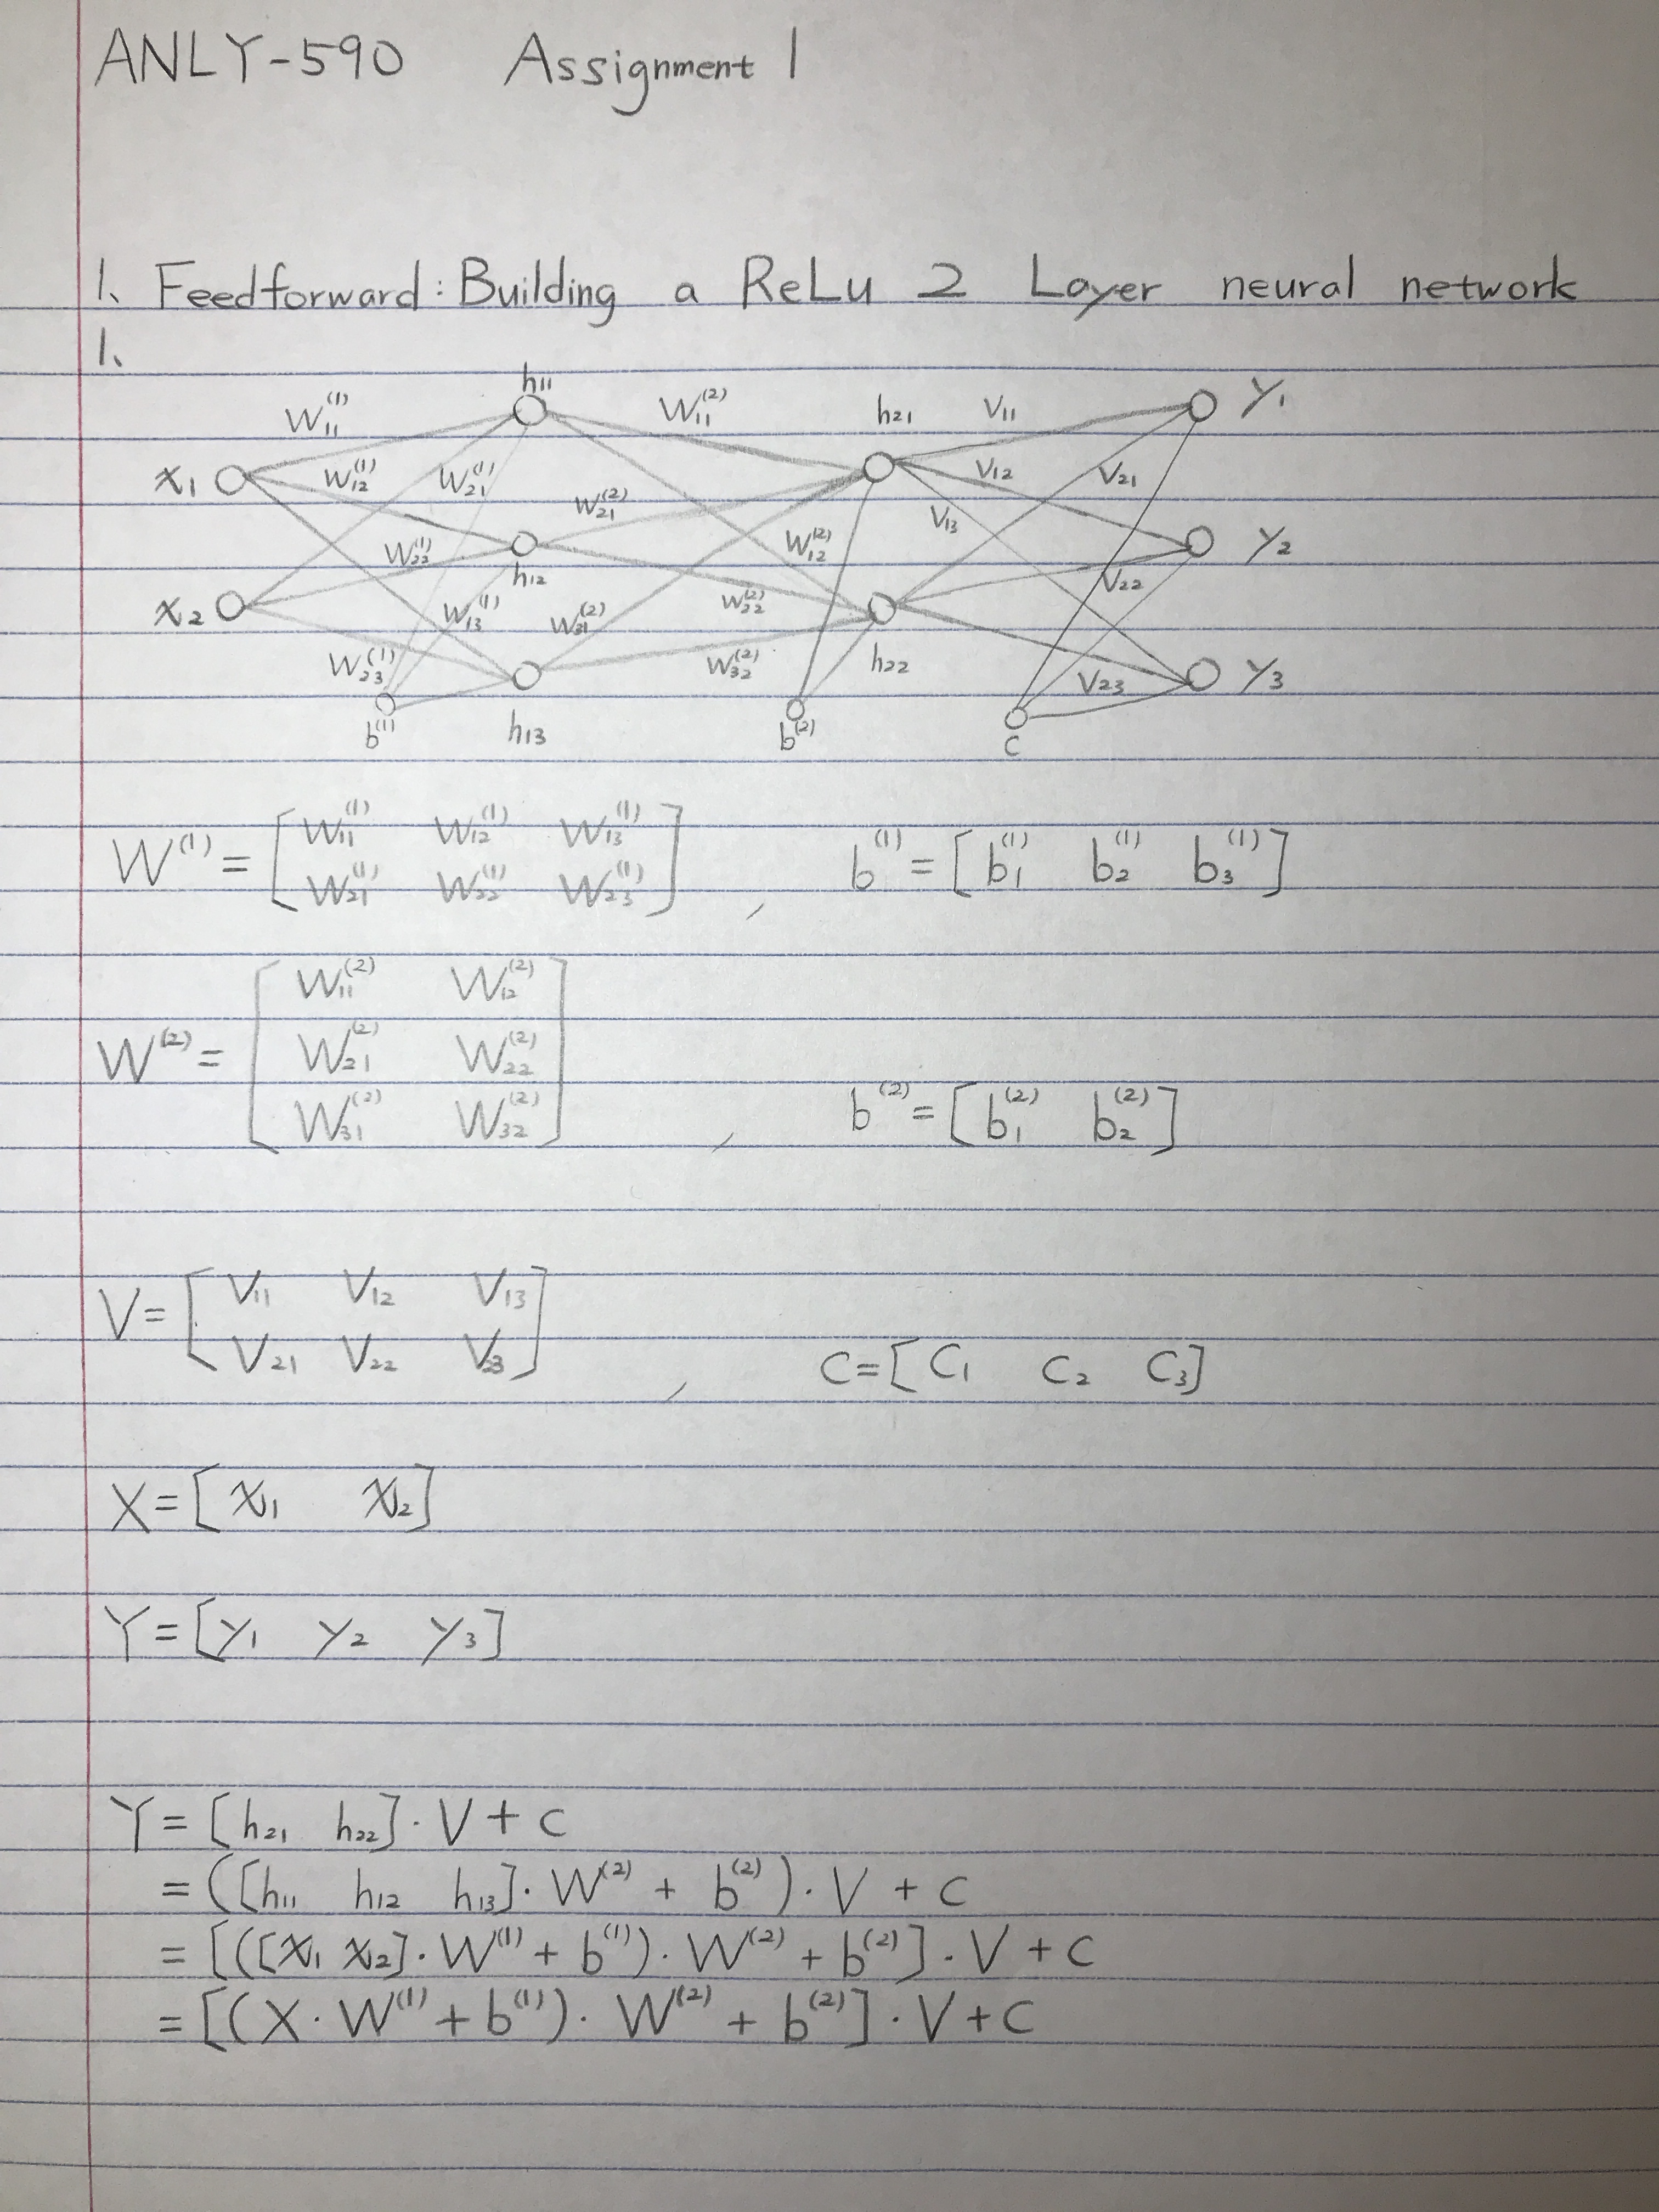 ANLY-590 Assignment 1
1. Feedforward: Building a ReLu 2 Layer neural network
1.
h11
W11^(1) W11^(2) h21 V11 y1
x1 W12^(1) W21^(1) V12 V21
W21^(2) V13
W22^(1) W12^(2) y2
h12 V22
x2 W13^(1) W31^(2) W22^(2)
W23^(1) W32^(2) h22 V23 y3
b^(1) h13 b^(2) c
W^(1) = [W11^(1) W12^(1) W13^(1)
W21^(1) W22^(1) W23^(1)] , b^(1) = [b1^(1) b2^(1) b3^(1)]
W^(2) = [W11^(2) W12^(2)
W21^(2) W22^(2)
W31^(2) W32^(2)] , b^(2) = [b1^(2) b2^(2)]
V = [V11 V12 V13
V21 V22 V23] , C = [C1 C2 C3]
X = [x1 x2]
Y = [y1 y2 y3]
Y = [h21 h22] · V + C
= ([h11 h12 h13] · W^(2) + b^(2)) · V + C
= [([x1 x2] · W^(1) + b^(1)) · W^(2) + b^(2)] · V + C
= [(X · W^(1) + b^(1)) · W^(2) + b^(2)] · V + C